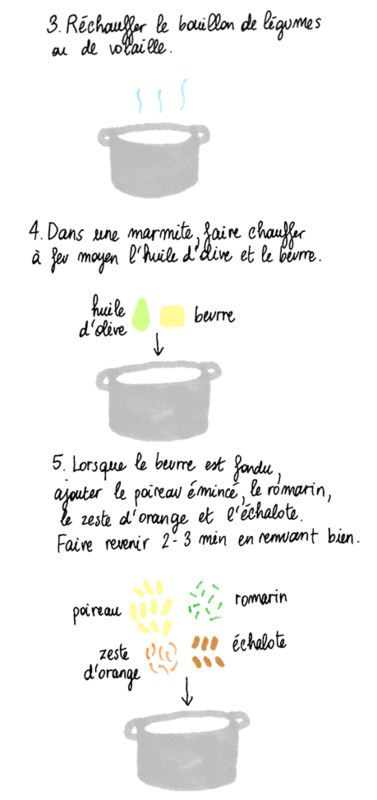 3. Réchauffer le bouillon de légumes
ou de volaille.
4. Dans une marmite, faire chauffer
à feu moyen l'huile d'olive et le beurre.
huile
d'olive
beurre
5. Lorsque le beurre est fondu,
ajouter le poireau émincé, le romarin,
le zeste d'orange et l'échalote.
Faire revenir 2-3 min en remuant bien.
poireau
romarin
zeste
d'orange
échalote